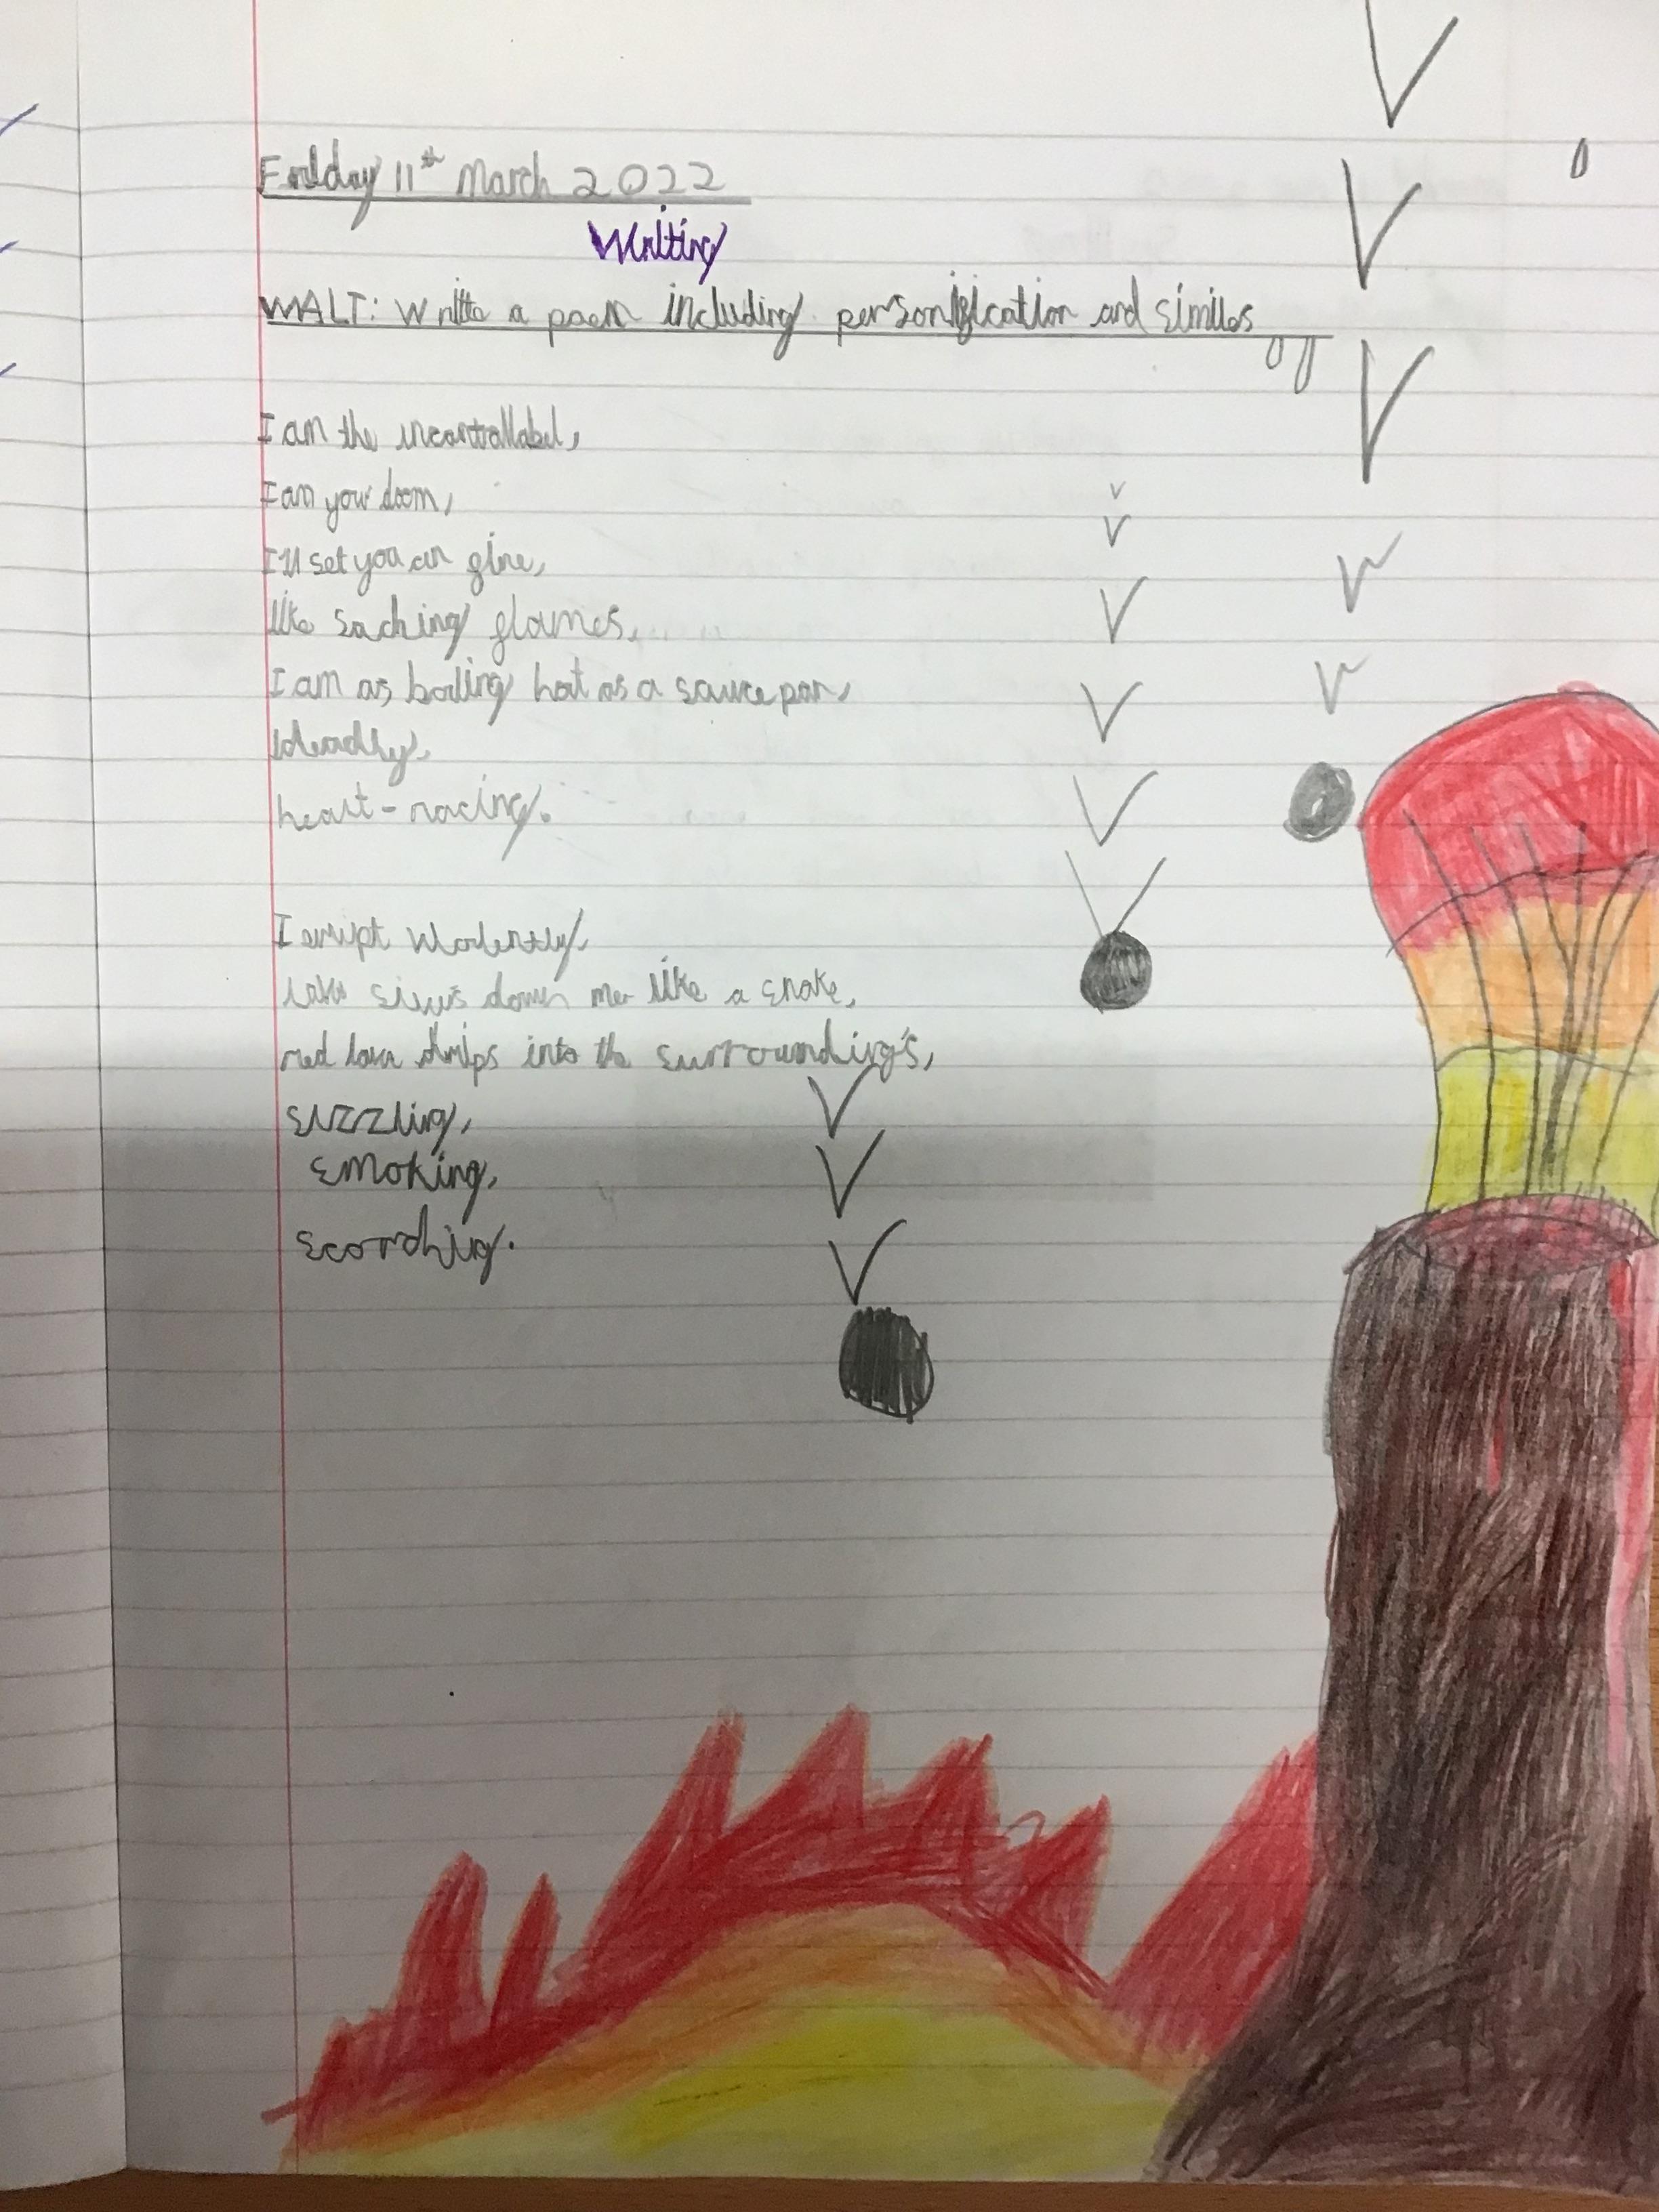 Friday 11th March 2022
Writing
WALT: Write a poem including personification and similes
I am the incontrollabel,
I am your doom,
I'll set you on fire,
like saching flames,
I am as boiling hot as a sauce pan,
deadly,
heart-racing.
I erupt violently,
lava down me like a snake,
red lava drips into the surrounding's,
sizzling,
smoking,
scorching.